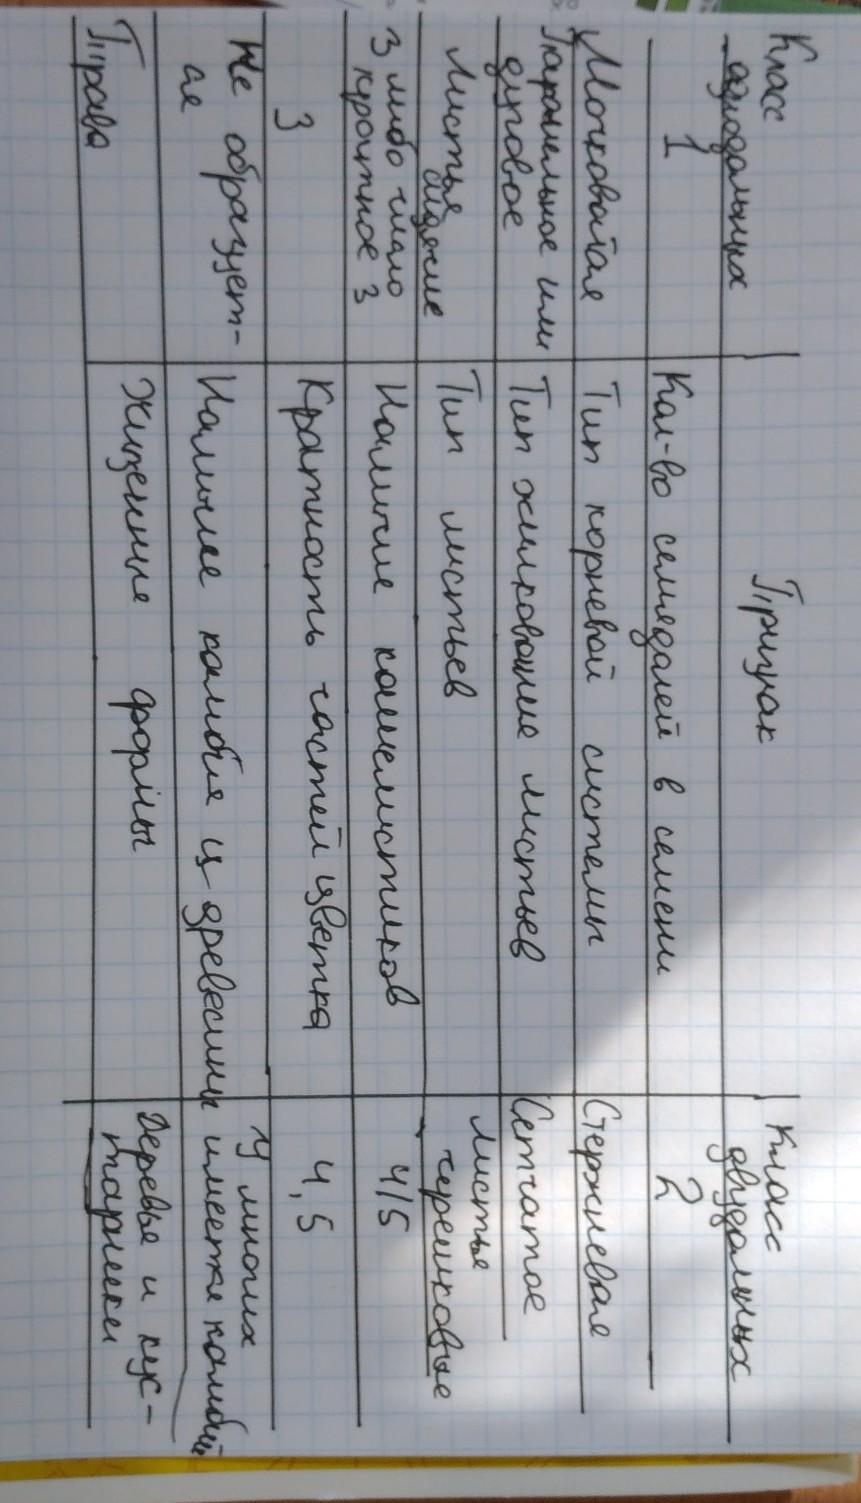 Класс однодольных
Признак
Класс двудольных
1
Кол-во семядолей в семени
2
Мочковатая
Тип корневой системы
Стержневая
Параллельное или
дуговое
Тип жилкование листьев
Сетчатое
Листья
Тип листьев
листья
черешковые
3 либо число
кратное 3
Наличие чашелистиков
4/5
3
Кратность частей цветка
4, 5
Не образует-
ся
Наличее камбия и древесины
У многих
имеется камбий
Трава
Жизненные формы
Деревья и кус-
тарники